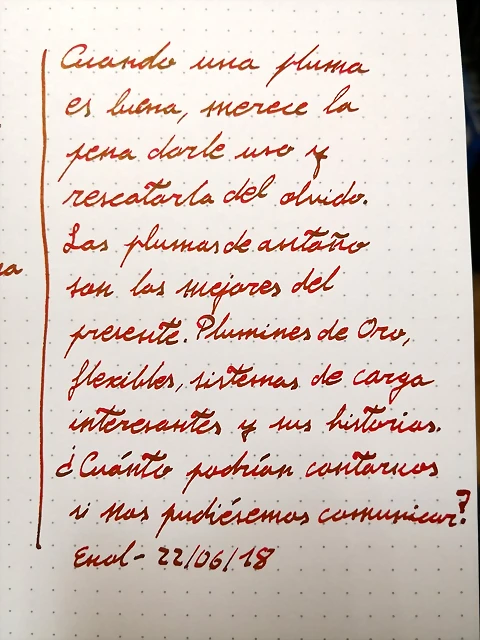 Cuando una pluma
es buena, merece la
pena darle uso y
rescatarla del olvido.
Las plumas de antaño
son las mejores del
presente. Plumines de Oro,
flexibles, sistemas de carga
interesantes y sus historias.
¿Cuánto podrían contarnos
si nos pudiésemos comunicar?
Enol - 22/06/18